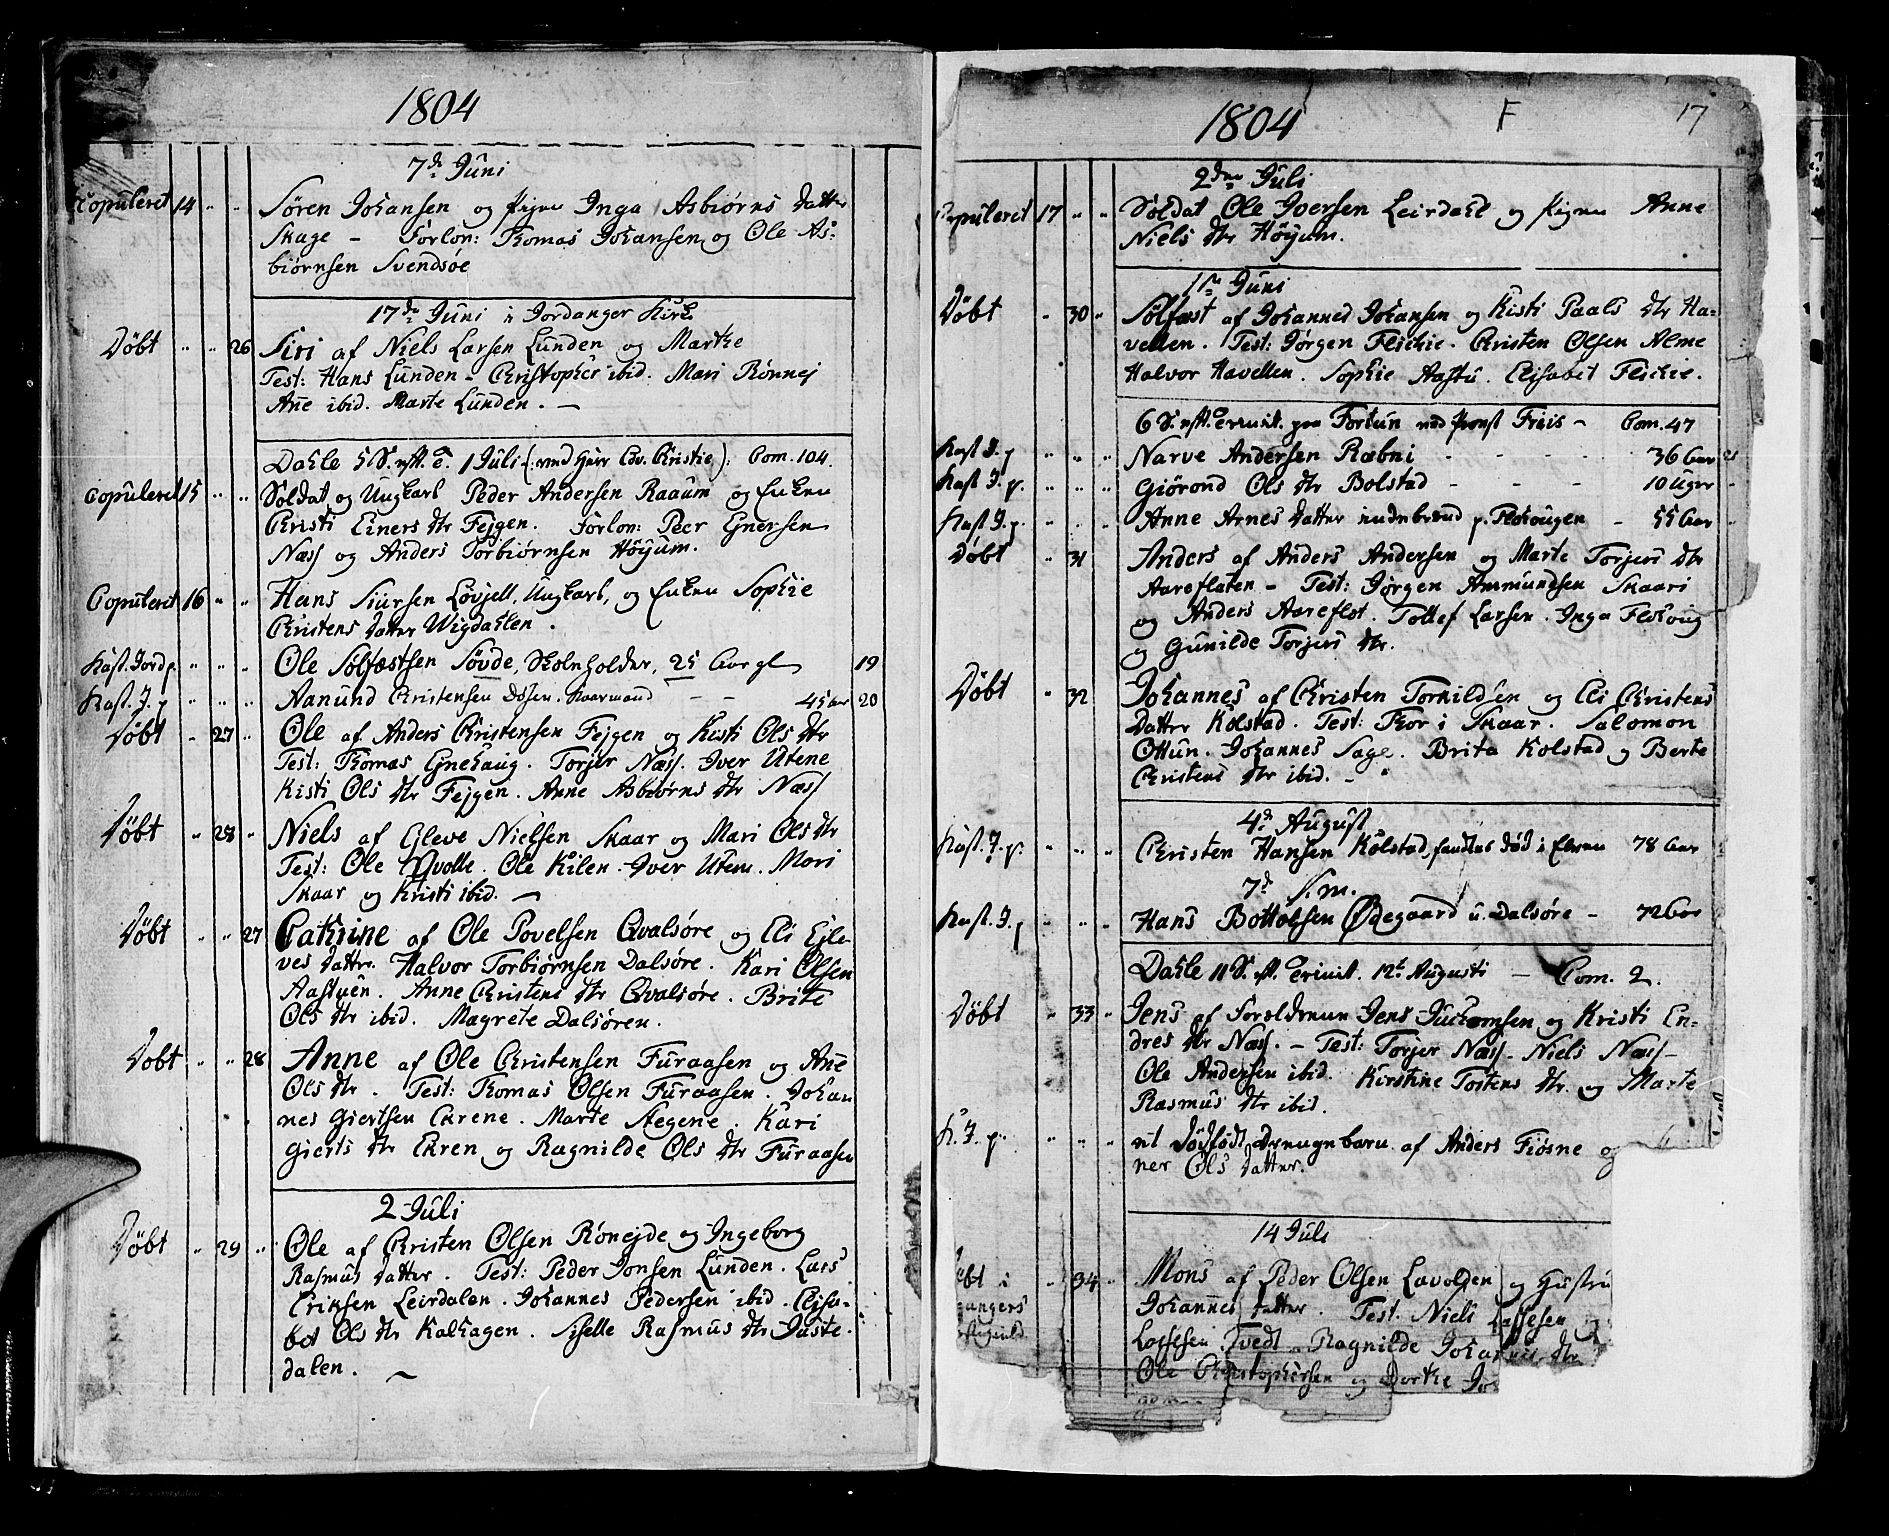 1804
7de Juni
Copuleret 14 " " Sören Johansen og Pigen Inga Asbiörns Datter
Skage - Forlov: Thomas Johansen og Ole As=
biörnsen Svendsöe
17de Juni i Jordanger Kirke
Döbt " " 26 Siri af Niels Larsen Lunden og Marthe
Test: Hans Lunden - Christopher ibid. Mari Rönnej
Anne ibid. Marte Lunden. -
Dahle 5 S. eft. T. 1 Juli (: med Herr Christie): Com. 104.
Copuleret 15 " " Soldat og Ungkarl Peder Andersen Raaum og Enken
Christi Einers dtr Fejgen. Forlov: Peer
Næss og Anders Torbiörnsen Höyum.
Copuleret 16 " " Hans Siursen Lövjell, Ungkarl, og Enken Sophie
Christens Datter Wigdahlen.
Kast. Jord p. " " " Ole Sölfæstsen Søvde, Skoleholder, 25 Aar gl 19
Kast. J. p " " " Aanund Christensen Dösen - - 45 aar 20
Döbt " 27 " Ole af Anders Christensen Fejgen og Kisti Ols dtr
Test: Thomas Gnehaug. Torjer Næss. Iver Utene
Kisti Ols dtr Fejgen. Anne Asbiörns dtr Næss
Döbt " 28 " Niels af Eleve Nielsen Skaar og Mari Ols dtr
Test: Ole Qvolle. Ole Kilen. Iver Utene. Mari
Skaar og Kristi ibid. -
Döbt " " 27 Cathrine af Ole Povelsen Qvalsöre og Eli Ejle-
ves Datter. Halvor Torbiörnsen Dalsöre. Kari Olsen
Aastuen. Anne Christens dtr Qvalsöre. Brite
Ols dtr ibid. Magrete Dalsören.
Döbt " " 28 Anne af Ole Christensen Furaasen og Anne
Ols dtr. Test: Thomas Olsen Furaasen. Johan
nes Giertsen Ekrene. Marte Stegene. Kari
Gierts dtr Ekren og Ragnilde Ols dtr Furaasen
2 Juli
Döbt " 29 " Ole af Christen Olsen Rönejde og Ingeborg
Rasmus Datter. Test: Peder Jonsen Lunden. Lars
Eriksen Leirdalen. Johannes Pedersen ibid. Elisa-
bet Ols dtr Kalhagen. Siselle Rasmus dtr Juste-
dalen. -
1804 F 17
2den Juli
Copuleret 17 " " Soldat Ole Iversen Leirdahl og Pigen Anne
Niels dtr Höyum.
1ste Juni
Döbt " 30 " Sölfæst af Johannes Johansen og Kisti Paals dtr Ha=
vellen. Test: Jörgen Flickie. Christen Olsen Alme
Halvor Havellen. Sophie Aastu. Elisabet Flickie.
6 S. eft. Trinit. paa Fortun ved Provst Friis - Com. 47
Kast J. p " " " Narve Andersen Ræbni - - - 36 Aar
Kast J. p. " " " Giörond Ols dtr Bolstad - - - 10 Uger
Kast J. p. " " " Anne Arnes Datter p. Flohougen - 55 Aar
Döbt " 31 Anders af Anders Andersen og Marte Torjers dtr
Aareflaten - Test: Jörgen Ammundsen Skaari
og Anders Aareflot. Tollef Larsen. Inga Flohoug
og Gunilde Torjers dtr.
Döbt " 32 Johannes af Christen Torkildsen og Eli Christens
Datter Kolstad. Test: Thor i Skaar. Salomon
Ottun. Johannes Sage. Brita Kolstad og Berte
Christens dtr ibid. -
4de August
Kast. J. p. " " " Christen Hansen Kolstad, fandtes död i Elven 78 Aar
7de S.m.
Kast. J. p " " " Hans Bottolfsen Ødegaard u. Dalsöre - 72 Aar
Dahle 11 S. eft. Trinit. 12te Augusti - Com. 2.
Döbt " 33 " Jens af Forældrene Jens Juchomsen og Kristi En-
dres dtr Næss. - Test: Torjer Næss - Niels Næss -
Ole Andersen ibid. Kirstine Tostens dtr. og Marte
Rasmus dtr ibid.
K. J. p. " " " et dödfödt Drengebarn af Anders Fiösne og
ner Ols Datter.
14 Juli
Döbt i " 34 " Mons af Peder Olsen Lavollen og
Johannes Datter. Test. Niels Lassesen
Lassesen Tvedt. Ragnilde Johannes dtr
Ole Christophersen og Dorthe Jo